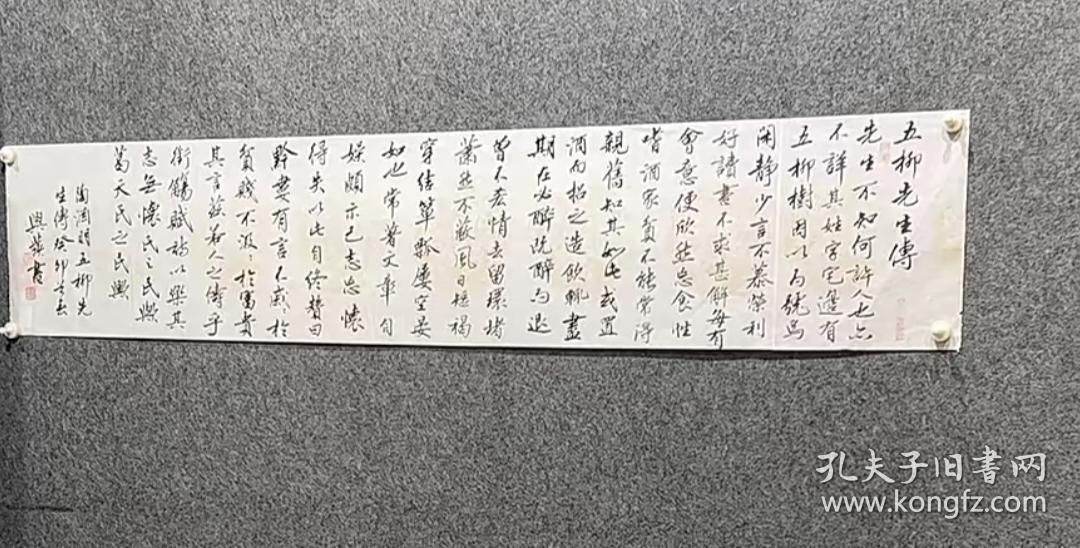 五柳先生傳
先生不知何許人也亦
不詳其姓字宅邊有
五柳樹因以為號焉
閑靜少言不慕榮利
好讀書不求甚解每有
會意便欣然忘食性
嗜酒家貧不能常得
親舊知其如此或置
酒而招之造飲輒盡
期在必醉既醉而退
曾不吝情去留環堵
蕭然不蔽風日短褐
穿結簞瓢屢空晏
如也常著文章自
娛頗示己志忘懷
得失以此自終贊曰
黔婁有言不戚戚於
貧賤不汲汲於富貴
其言茲若人之儔乎
銜觴賦詩以樂其
志無懷氏之民歟
葛天氏之民歟
陶淵明五柳先
生傳癸卯
書
孔夫子旧書网
www.kongfz.com